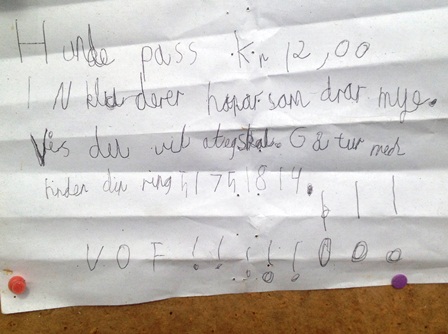 Hunde pass Kr 12,00
INkluderer hopar som drar mye.
Vis du vil ategskal Gå tur med
hinden din ring 51751814.
VOF!!!!!